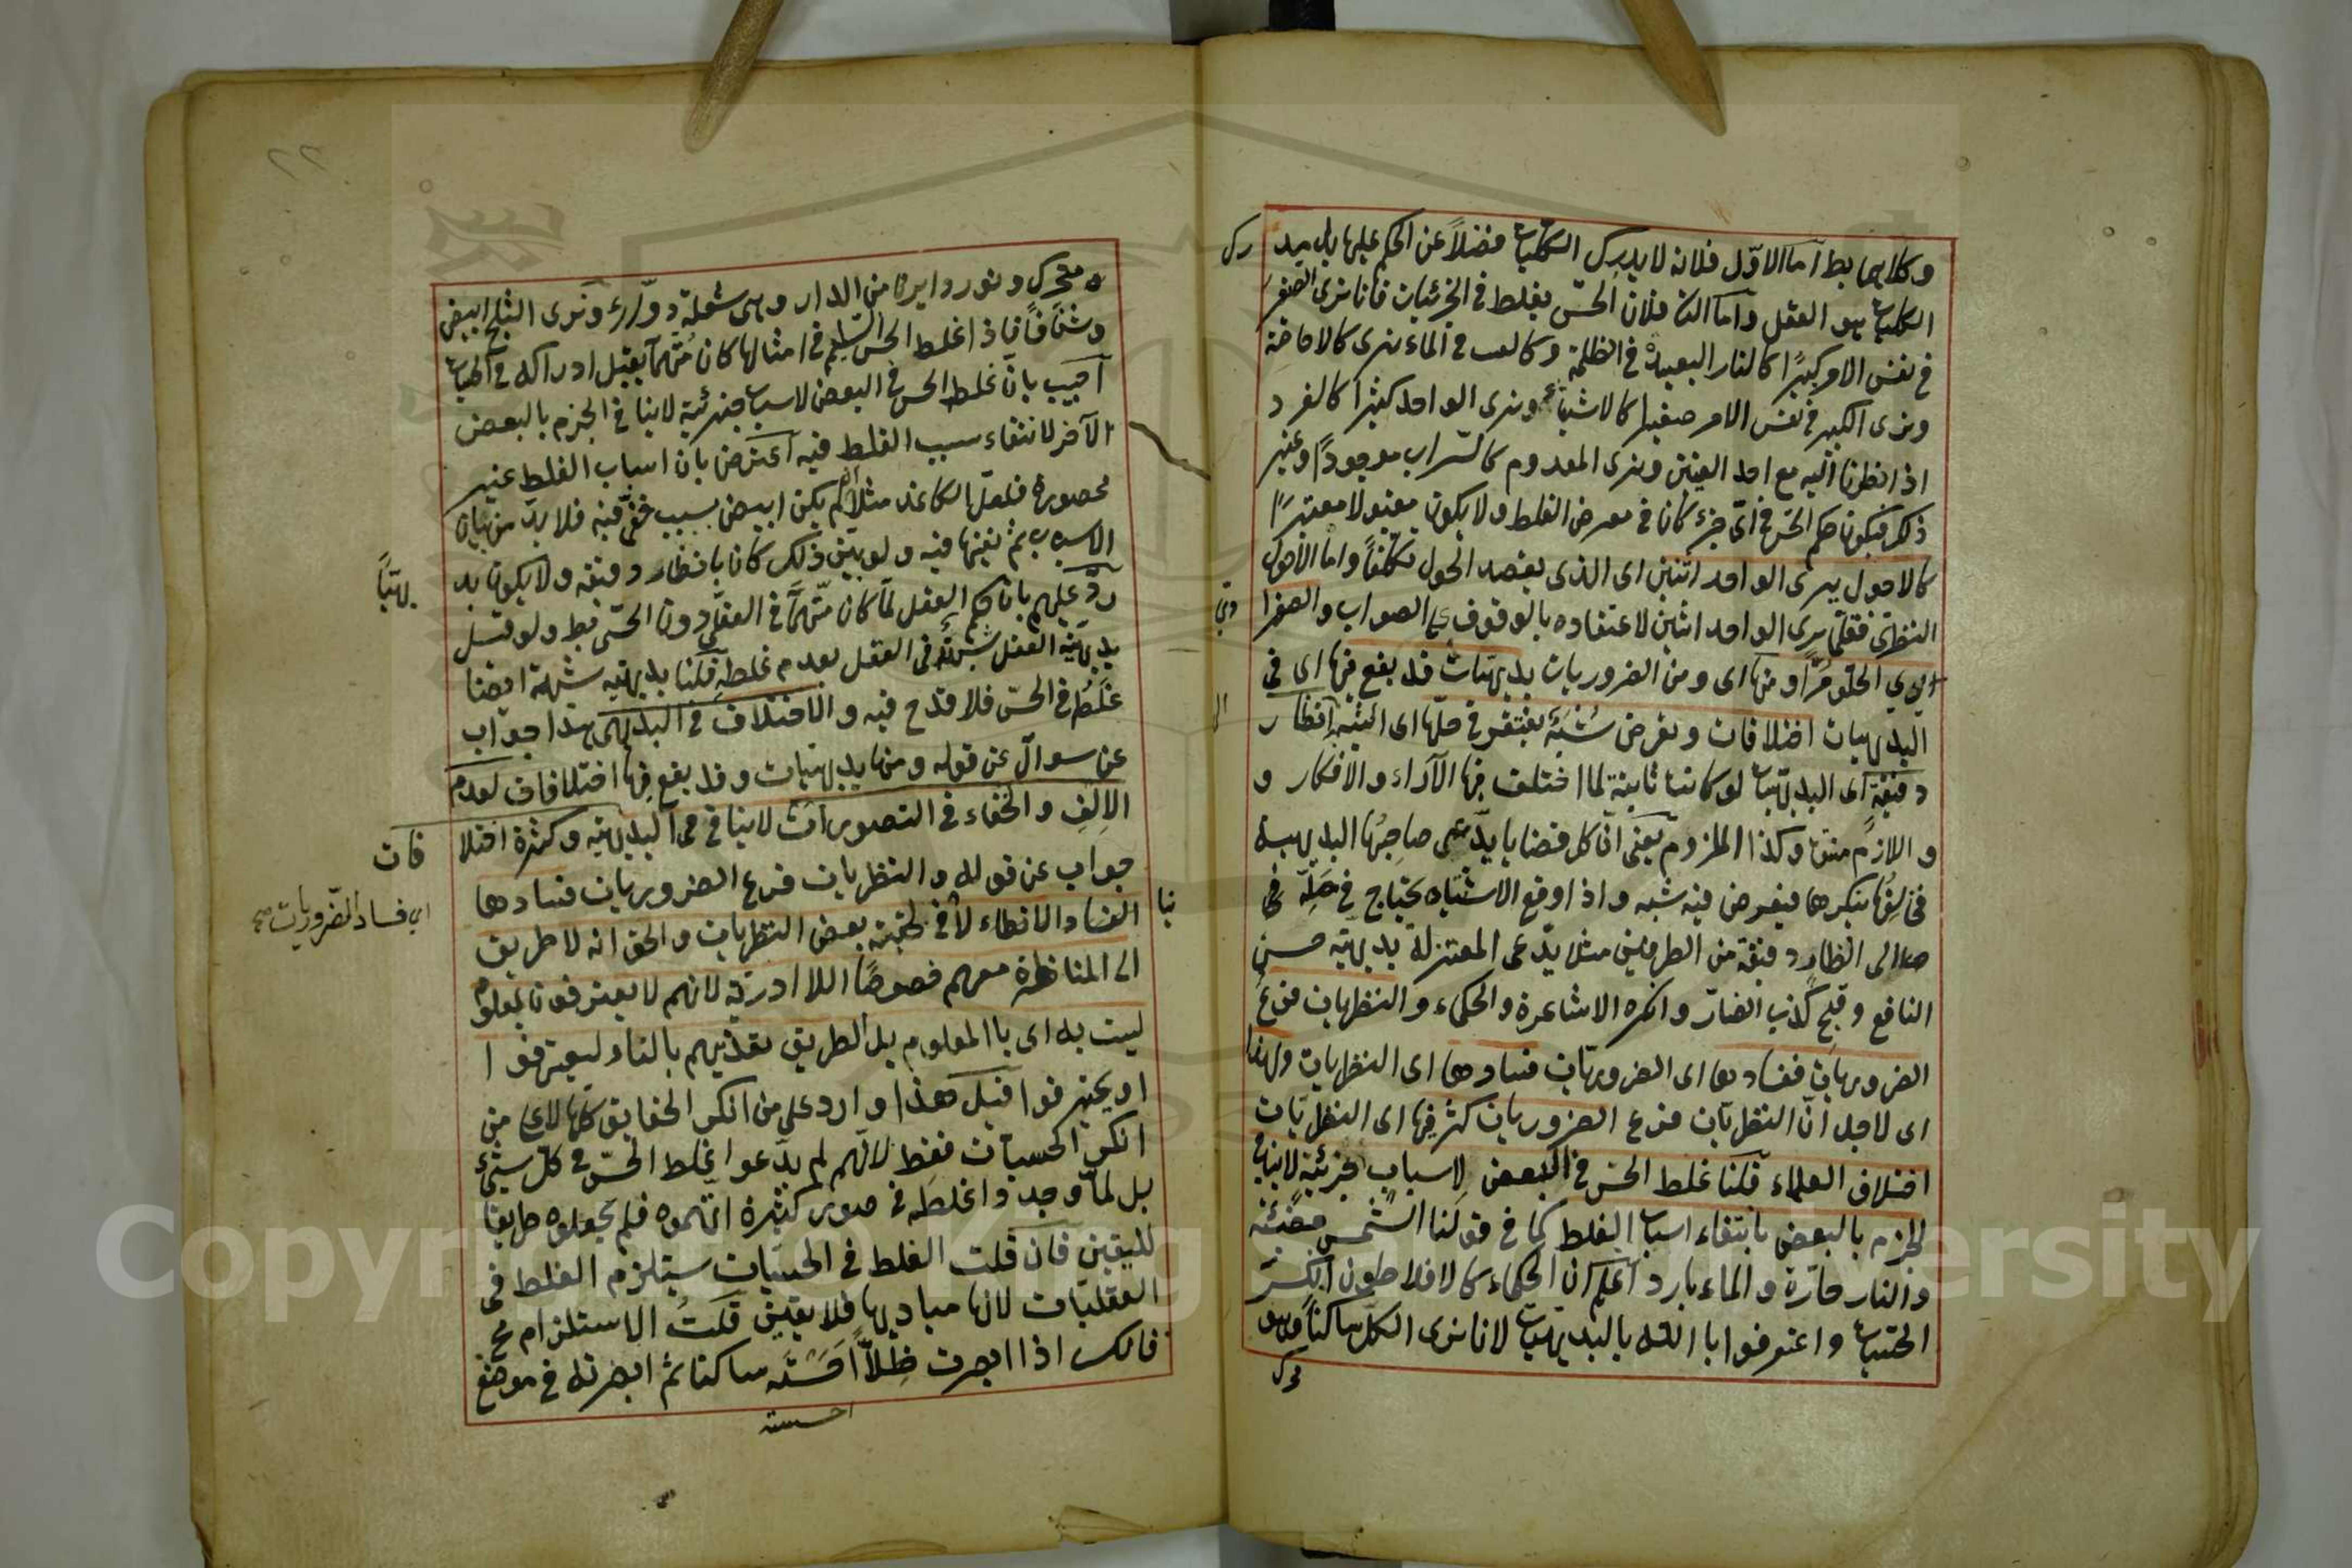 وكلاهما بط اما الاوّل فلانه لا يدرك الكليات فضلاً عن الحكم عليها بل مد
رك
الكليات هو العقل واما الثا فلان الحسّ يغلط في الجزئيات فانا نرى الصغير
في نفس الامر كبيرًا كالنار البعيدة في الظلمة وكالعنب في الماء نرى كالاجاصة
ونرى الكبير في نفس الامر صغيرا كالاشياء ونرى الواحد كثيرا كالقمر
اذا نظرنا اليه مع احد العينين ونرى المعدوم كالسّراب موجودًا وغير
ذلك فيكون حكم الحسّ في ايّ جزء كان في معرض الغلط ولا يكون مقبولا معتبرًا
كالاحول يرى الواحد اثنين اى الذى يقصد الحول تكلفًا واما الاحول
الفطرى فقلّما يرى الواحد اثنين لاعتقاده بالوقوف على الصواب والصفرا
وىّ
الحلو مُرًّا ومنها اى ومن الضروريات بديهيّاتٌ قد يقع فيها اى في
البديهيات اختلافات وتعرض شُبَهٌ يفتقر في حلّها اى الشُّبَه الى انظار
دقيقةٍ اى البديهيّات لو كانت ثابتة لما اختلف فيها الآراء والافكار و
واللازم منتف وكذا الملزوم يعنى ان كل قضايا يدّعى صاحِبُها البديهية
مخالِفُها ينكرها فيعرض فيه شبه واذا وقع الاشتباه يحتاج في حلّه
الى انظار دقيقة من الطرفين مثل يدّعى المعتزلة بديهيّة حسن
النافع وقبح كذب الضارّ وانكره الاشاعرة والحكماء والنظريات فرعُ
الضروريات ففسادها اى الضروريّات فسادها اى النظريات ولهذا
اى لاجل انّ النظريّات فرع الضروريات كثر فيها اى النظريّات
اختلاف العلماء قلنا غلط الحسّ في البعض لاسباب جزئيّة لا ينافي
الجزم بالبعض بانتفاء اسباب الغلط كما في قولنا الشّمس مضيئة
والنار حارّة والماء بارد اعلم ان الحكماء كالافلاطون انكر
الحسّيات واعترفوا بالبديهيّات لانا نرى الكلّ ساكنًا وهو
متحرك ونور دايرة من الدار وهى شعلة دوّارة ونرى الثلج ابيض
وشفّافًا فاذا غلط الحس السّليم في امثالها كان مُتّهمًا يقبل ادراكه في الحسيات
اجيب بان غلط الحس في البعض لاسباب جزئيّة لا ينافي الجزم بالبعض
الآخر لانتفاء سبب الغلط فيه اعترض بان اسباب الغلط غير
محصورة فلعلّ الكاغد مثلاً لم يكن ابيض بسبب خفىّ فيه فلا بدّ من بيان
الاسباب ثم نفيها فيه ولو بيّن ذلك كان بانظار دقيقه ولا يكون بد
يهيًّا
ردّ عليهم بان حكم العقل لمّا كان متّهمًا في العقلى دون الحسّى بط ولو قيل
بديهيّة العقل في العقل بعدم غلطه قلنا بديهيّة شهدت ايضا
غلَطُ في الحسّ فلا قدح فيه والاختلاف في البديهى هذا جواب
عن سوال عن قوله ومنها بديهيّات وقد يقع فيها اختلافات لعدم
الالِفِ والخفاء في التصورات لا ينافي البديهيّه وكثرة اختلا
فات
جواب عن قوله والنظريات فرع الضروريات فسادها
اى فساد الضّروريات صح
الفساد الانظار لا في حقيّته بعض النظريات والحق انه لا طريق
الى المناظرة معهم خصوصًا اللاادريّة لانهم لا يعترفون بمعلوم
ليثبت به اى باالمعلوم بل الطريق تعذيبهم بالنار ليعترفوا ا
او يحترقوا قيل هذا وارد على من انكر الحقايق كلها لا على من
انكر الحسيات فقط لانّهم لم يدّعوا غلط الحسّ في كلّ شيئ
بل لمّا وجدوا غلطه في صور كثيرة اتّهموه فلم يجعلوه طريقا
لليقين فان قلت الغلط في الحسّيات يستلزم الغلط في
العقليّات لانها مباديها فلا يقين قلتُ الاستلزام مح
فانك اذا ابصرت ظِلًّا احسَسْته ساكنا ثم ابصرته في موضع
احسسته